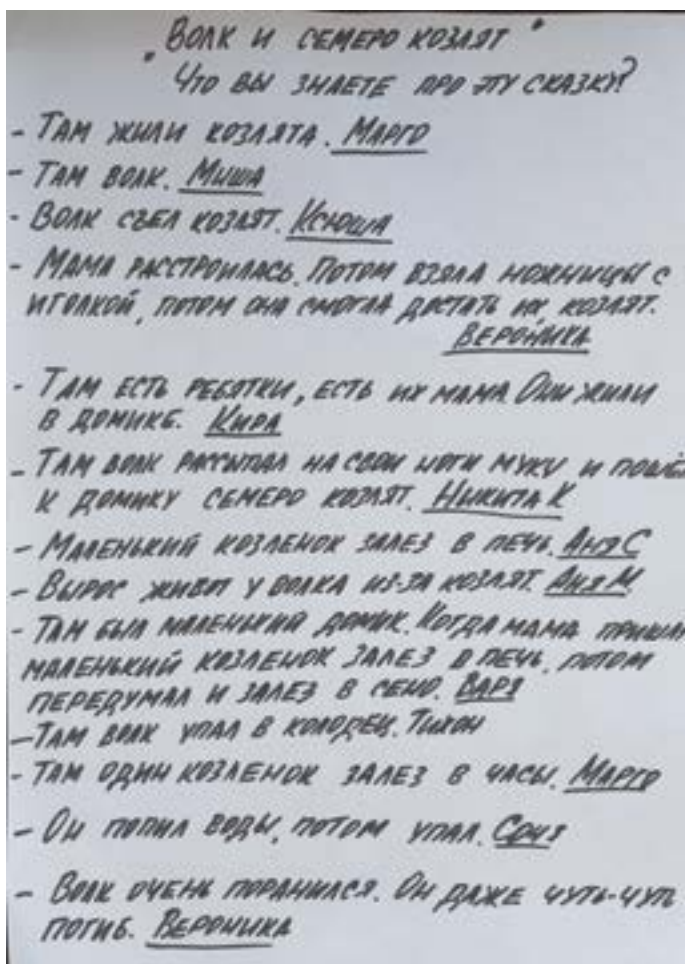 "Волк и семеро козлят"
Что вы знаете про эту сказку?
- Там жили козлята. Марго
- Там волк. Миша
- Волк съел козлят. Ксюша
- Мама расстроилась. Потом взяла ножницы с
иголкой, потом она смогла достать их, козлят.
Вероника
- Там есть ребятки, есть их мама. Они жили
в домике. Кира
- Там волк рассыпал на свои ноги муку и пошёл
к домику семеро козлят. Никита К
- Маленький козленок залез в печь. Аня С
- Вырос живот у волка из-за козлят. Аня М.
- Там был маленький домик. Когда мама пришла
маленький козленок залез в печь, потом
передумал и залез в сено. Варя
- Там волк упал в колодец. Тихон
- Там один козленок залез в часы. Марго
- Он попил воды, потом упал. Соня
- Волк очень поранился. Он даже чуть-чуть
погиб. Вероника